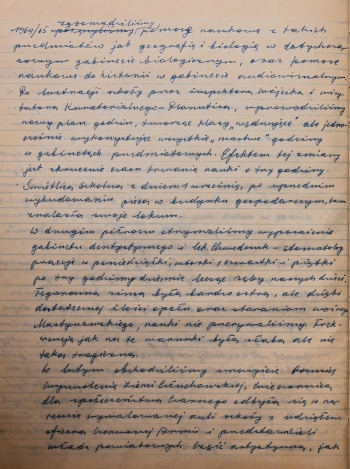 zgromadziliśmy
1964/65 pomoce naukowe z takich
przedmiotów jak geografia i biologia w dotychcza-
sowym gabinecie biologicznym, oraz pomoce
naukowe do historii w gabinecie audiowizualnym.
Po lustracji szkoły przez inspektora Wójcika i wizy-
tatora wprowadziliśmy
nowy plan godzin, tworząc klasy ale jedno-
cześnie wykorzystując wszystkie "martwe" godziny
w gabinetach przedmiotowych. Efektem tej zmiany
jest skrócenie czasu trwania nauki o trzy godziny.
Świetlica szkolna z dniem 1 września, po uprzednim
wybudowaniu pieca w budynku gospodarczym, tam
znalazła swoje lokum.
W drugim półroczu otrzymaliśmy wyposażenie
gabinetu dentystycznego i lek. stomatolog
pracuje w poniedziałki, wtorki, czwartki i piątki
po trzy godziny dziennie lecząc zęby naszych dzieci.
Tegoroczna zima była bardzo ostra, ale dzięki
dostatecznej ilości opału oraz staraniom woźnego
Martynowskiego, nauki nie przerywaliśmy. Frek-
wencja jak na te warunki była słaba ale nie
taka tragiczna.
W lutym obchodziliśmy uroczyście rocznicę
wyzwolenia ziemi
dla społeczeństwa odbyła się w
wymalowanej auli szkoły z udziałem
oficera Armii i przedstawicieli
władz powiatowych. Część artystyczną, jak